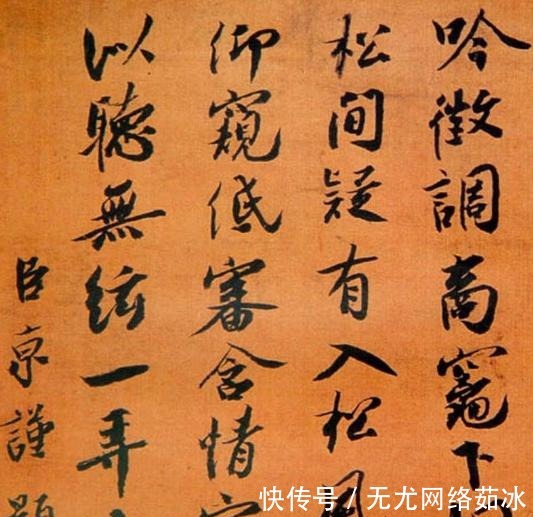 吟徵調商竈下
松間疑有入松風
仰窺低審含情客
以聽無絃一弄
臣京謹題
快传号 / 无尤网络茹冰